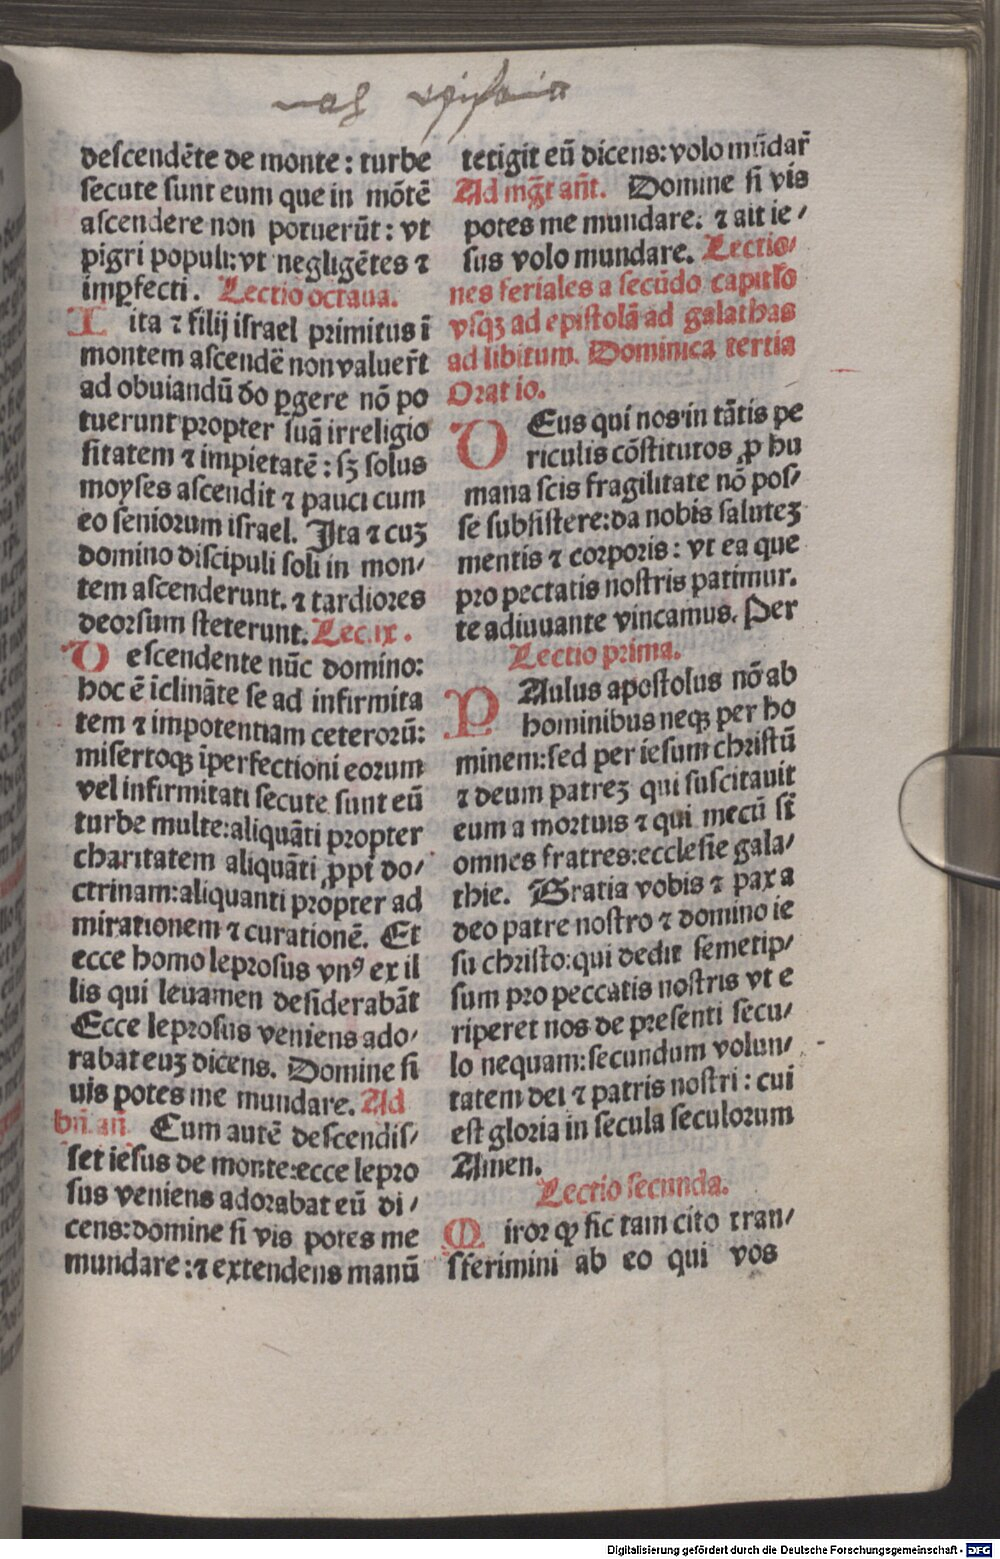 nah epifania
descendēte de monte: turbe
secute sunt eum que in mōtē
ascendere non potuerūt: vt
pigri populi: vt negligētes ⁊
imꝑfecti. Lectio octaua.
Ita ⁊ filij israel primitus ī
montem ascendē non valuer̄t
ad obuiandū do ꝑgere nō po
tuerunt propter suā irreligio
sitatem ⁊ impietatē: sꝫ solus
moyses ascendit ⁊ pauci cum
eo seniorum israel. Ita ⁊ cuꝫ
domino discipuli soli in mon/
tem ascenderunt. ⁊ tardiores
deorsum steterunt. Lec. ix.
Descendente nūc domino:
hoc ē īclināte se ad infirmita
tem ⁊ impotentiam ceterorū:
misertoqꝫ īperfectioni eorum
vel infirmitati secute sunt eū
turbe multe: aliquāti propter
charitatem aliquāti ꝓpt̄ do/
ctrinam: aliquanti propter ad
mirationem ⁊ curationē. Et
ecce homo leprosus vnꝰ ex il
lis qui leuamen desiderabāt
Ecce leprosus veniens ado/
rabat euꝫ dicens. Domine si
uis potes me mundare. Ad
bn̄. an̄. Cum autē descendis/
set iesus de monte: ecce lepro
sus veniens adorabat eū di/
cens: domine si vis potes me
mundare: ⁊ extendens manū
tetigit eū dicens: volo mūdar̄
Ad mḡt an̄t. Domine si vis
potes me mundare: ⁊ ait ie/
sus volo mundare. Lectio/
nes feriales a secūdo capitľo
vsqꝫ ad epistolā ad galathas
ad libitum. Dominica tertia
Oratio.
DEus qui nos in tātis pe
riculis cōstitutos ꝓ hu
mana scis fragilitate nō pos/
se subsistere: da nobis saluteꝫ
mentis ⁊ corporis: vt ea que
pro pectatis nostris patimur.
te adiuuante vincamus. Per
Lectio prima.
PAulus apostolus nō ab
hominibus neqꝫ per ho
minem: sed per iesum christū
⁊ deum patreꝫ qui suscitauit
eum a mortuis ⁊ qui mecū sī
omnes fratres: ecclesie gala/
thie. Gratia vobis ⁊ pax a
deo patre nostro ⁊ domino ie
su christo: qui dedit semetip/
sum pro peccatis nostris vt e
riperet nos de presenti secu/
lo nequam: secundum volun/
tatem dei ⁊ patris nostri: cui
est gloria in secula seculorum
Amen.
Lectio secunda.
Miror ꝙ sic tam cito tran/
sferimini ab eo qui vos
Digitalisierung gefördert durch die Deutsche Forschungsgemeinschaft - DFG